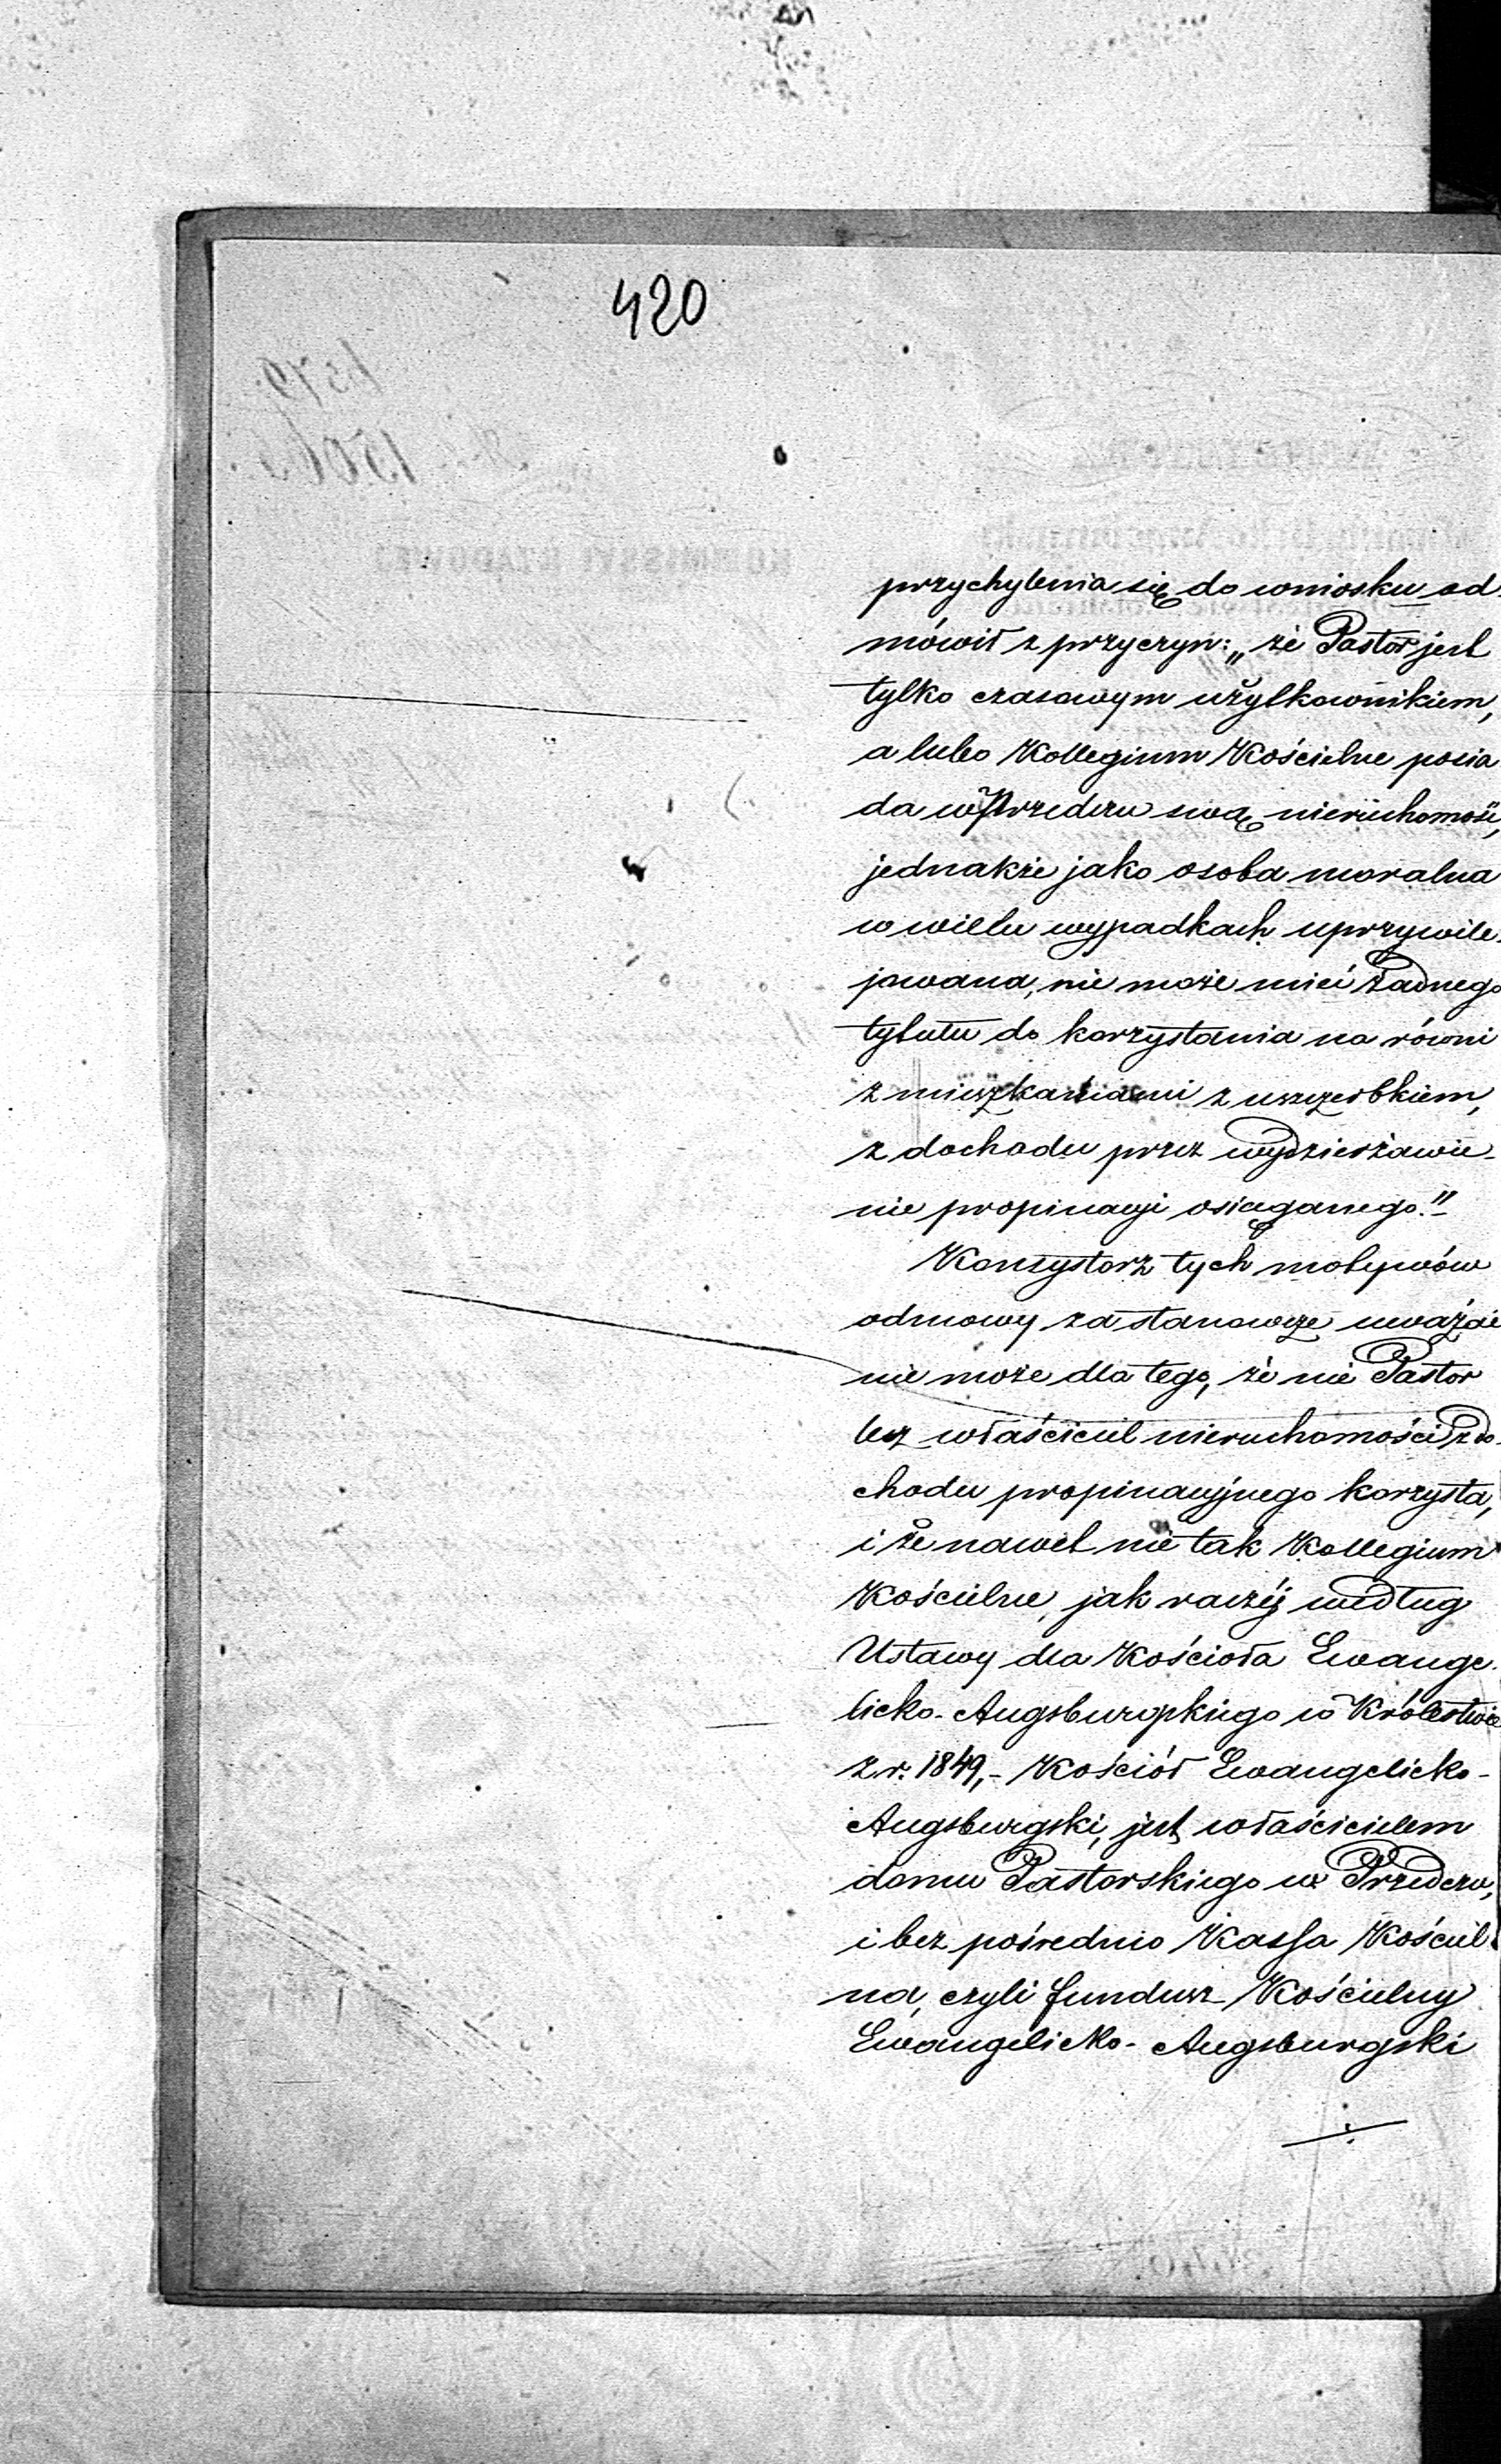 420
przychylenia się do wniosku od-
mówił z przyczyn: „że Pastor jest
tylko czasowym użytkownikiem,
a lubo Kollegium Kościelne posia
da w Przedczu swą nieruchomość,
jednakże jako osoba moralna
w wielu wypadkach uprzywile-
jowana, nie może mieć żadnego
tytułu do korzystania na równi
z mieszkańcami z uszczerbkiem,
z dochodu przez wydzierżawie-
nie propinacyi osiąganego."
Konsystorz tych motywów
odmowy za stanowcze uważać
nie może dla tego, że nie Pastor
lecz właściciel nieruchomości z do-
chodu propinacyjnego korzysta,
i że nawet nie tak Kollegium
Kościelne, jak raczéj według
Ustawy dla Kościoła Ewange-
licko-Augsburgskiego w Królestwie
z r. 1849,- Kościół Ewangelicko-
Augsburgski, jest właścicielem
domu Pastorskiego w Przedczu,
i bez pośrednio Kassa Kościel-
na, czyli fundusz Kościelny
Ewangelicko-Augsburgski